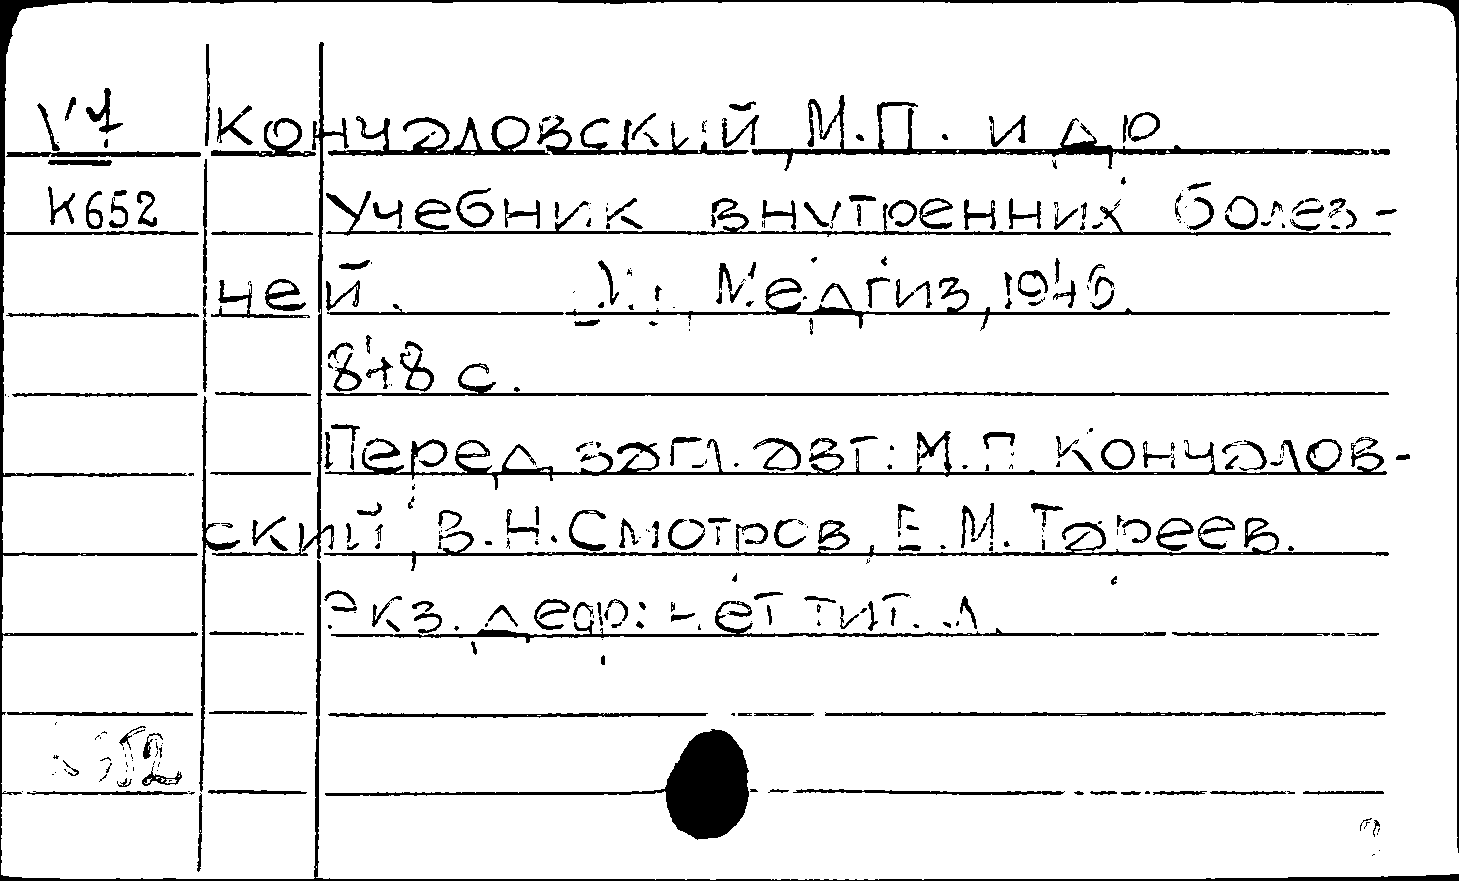 V4 Кончаловский, М.П. и др.
К652 Учебник внутренних болез-
ней. М., Медгиз, 1940.
848 с.
Перед загл. авт: М.П. Кончалов-
ский, В.Н. Смотров, Е.М. Тареев.
Экз. деф: нет тит. л.